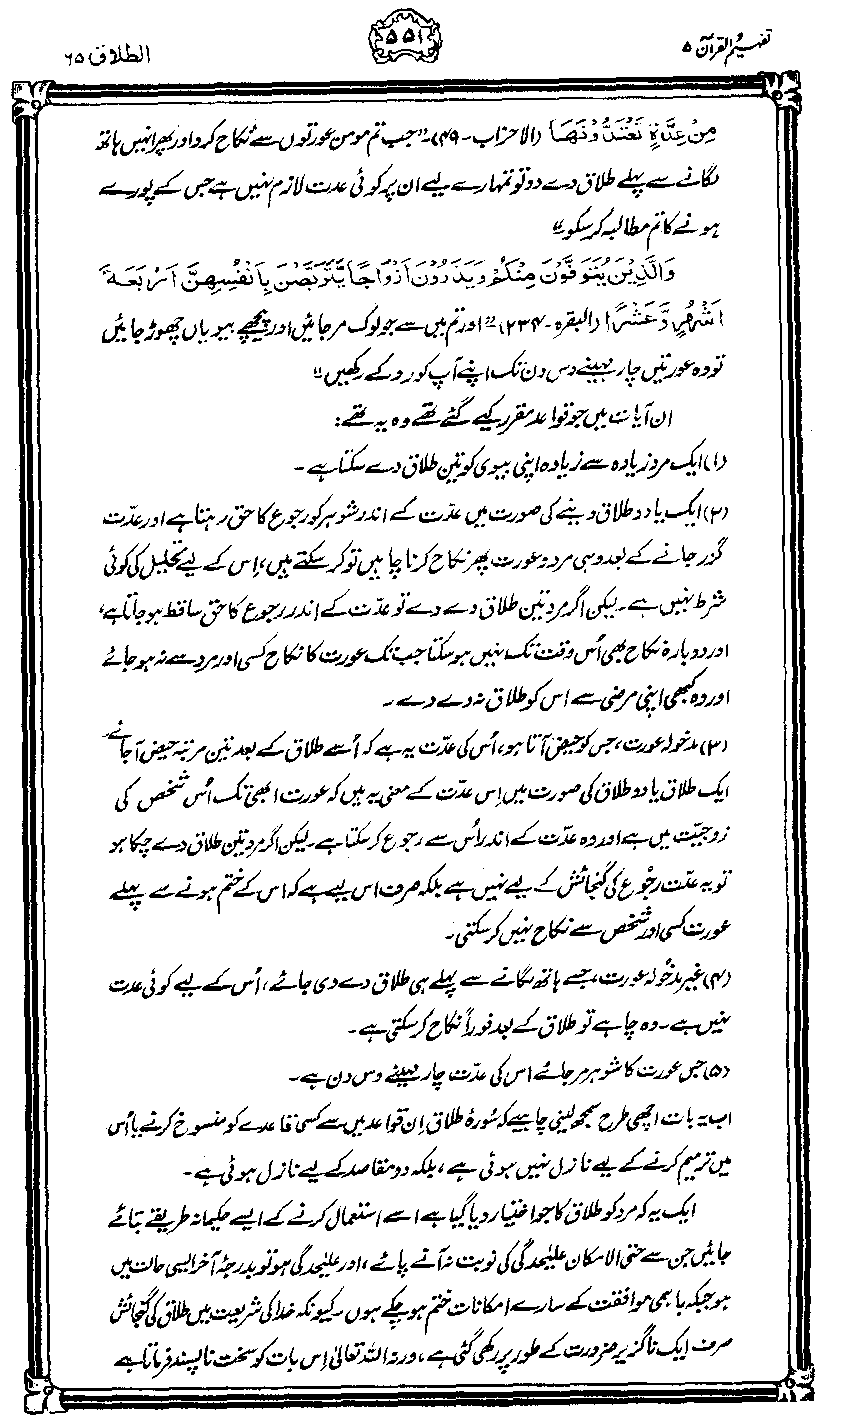 تفہیم القرآن ۵
۵۵۱
الطلاق ۶۵
مِنْ عِدَّةٍ تَعْتَدُّوْنَهَا (الاحزاب-۴۹)۔ "جب تم مومن عورتوں سے نکاح کرو اور پھر انہیں ہاتھ
لگانے سے پہلے طلاق دے دو تو تمہارے لیے ان پر کوئی عدت لازم نہیں ہے جس کے پورے
ہونے کا تم مطالبہ کر سکو"
وَالَّذِيْنَ يُتَوَفَّوْنَ مِنْكُمْ وَيَذَرُوْنَ اَزْوَاجًا يَّتَرَبَّصْنَ بِاَنْفُسِهِنَّ اَرْبَعَةَ
اَشْهُرٍ وَّعَشْرًا (البقرہ-۲۳۴) "اور تم میں سے جو لوگ مر جائیں اور پیچھے بیویاں چھوڑ جائیں
تو وہ عورتیں چار مہینے دس دن تک اپنے آپ کو روکے رکھیں"
ان آیات میں جو قواعد مقرر کیے گئے تھے وہ یہ تھے:
(۱) ایک مرد زیادہ سے زیادہ اپنی بیوی کو تین طلاق دے سکتا ہے۔
(۲) ایک یا دو طلاق دینے کی صورت میں عدّت کے اندر شوہر کو رجوع کا حق رہتا ہے اور عدّت
گزر جانے کے بعد وہی مرد و عورت پھر نکاح کرنا چاہیں تو کر سکتے ہیں، اِس کے لیے تحلیل کی کوئی
شرط نہیں ہے۔ لیکن اگر مرد تین طلاق دے دے تو عدّت کے اندر رجوع کا حق ساقط ہو جاتا ہے،
اور دوبارہ نکاح بھی اُس وقت تک نہیں ہو سکتا جب تک عورت کا نکاح کسی اور مرد سے نہ ہو جائے
اور وہ کبھی اپنی مرضی سے اس کو طلاق نہ دے دے۔
(۳) مدخولہ عورت، جس کو حیض آتا ہو، اُس کی عدّت یہ ہے کہ اُسے طلاق کے بعد تین مرتبہ حیض آ جائے۔
ایک طلاق یا دو طلاق کی صورت میں اِس عدّت کے معنی یہ ہیں کہ عورت ابھی تک اُس شخص کی
زوجیّت میں ہے اور وہ عدّت کے اندر اُس سے رجوع کر سکتا ہے۔ لیکن اگر مرد تین طلاق دے چکا ہو
تو یہ عدّت رجوع کی گنجائش کے لیے نہیں ہے بلکہ صرف اس لیے ہے کہ اس کے ختم ہونے سے پہلے
عورت کسی اور شخص سے نکاح نہیں کر سکتی۔
(۴) غیر مدخولہ عورت، جسے ہاتھ لگانے سے پہلے ہی طلاق دے دی جائے، اُس کے لیے کوئی عدت
نہیں ہے۔ وہ چاہے تو طلاق کے بعد فوراً نکاح کر سکتی ہے۔
(۵) جس عورت کا شوہر مر جائے اس کی عدّت چار مہینے دس دن ہے۔
اب یہ بات اچھی طرح سمجھ لینی چاہیے کہ سُورۂ طلاق اِن قواعد میں سے کسی قاعدے کو منسوخ کرنے یا اُس
میں ترمیم کرنے کے لیے نازل نہیں ہوئی ہے، بلکہ دو مقاصد کے لیے نازل ہوئی ہے۔
ایک یہ کہ مرد کو طلاق کا جو اختیار دیا گیا ہے اسے استعمال کرنے کے ایسے حکیمانہ طریقے بتائے
جائیں جن سے حتی الامکان علیٰحدگی کی نوبت نہ آنے پائے، اور علیٰحدگی ہو تو بدرجۂ آخر ایسی حالت میں
ہو جبکہ باہمی موافقت کے سارے امکانات ختم ہو چکے ہوں۔ کیونکہ خدا کی شریعت میں طلاق کی گنجائش
صرف ایک ناگزیر ضرورت کے طور پر رکھی گئی ہے، ورنہ اللہ تعالیٰ اِس بات کو سخت ناپسند فرماتا ہے